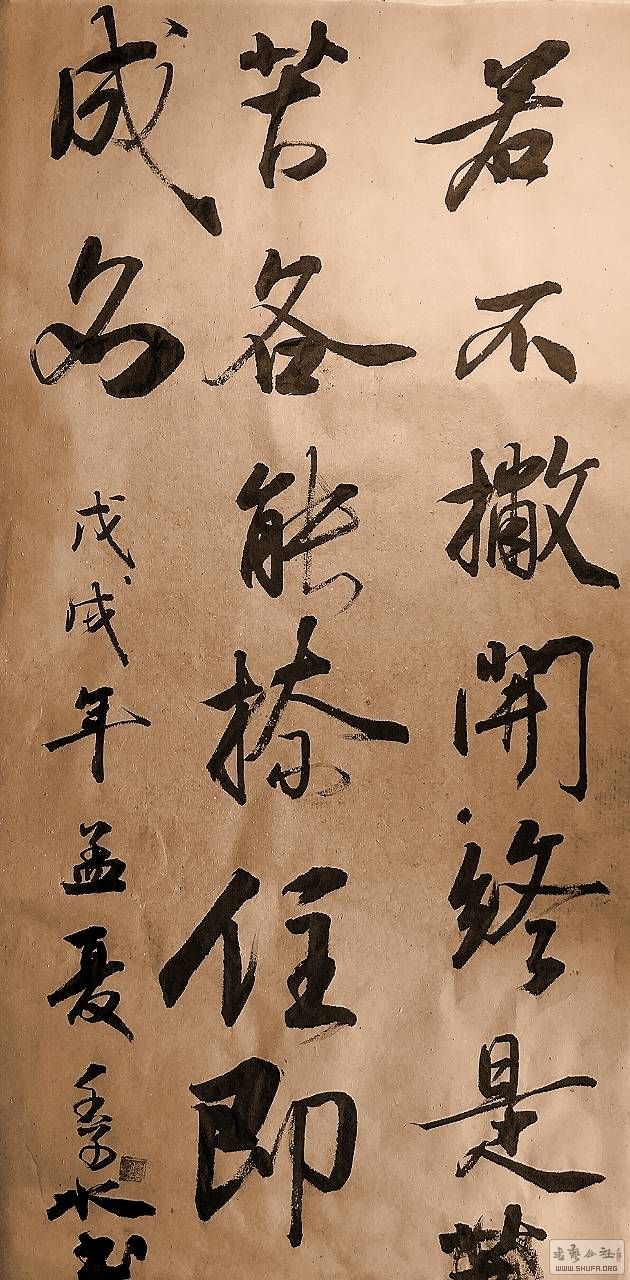 若不撇開終是
苦各能捺住即
成名 戊戌年孟夏 水书
书艺公社
WWW.SHUFA.ORG